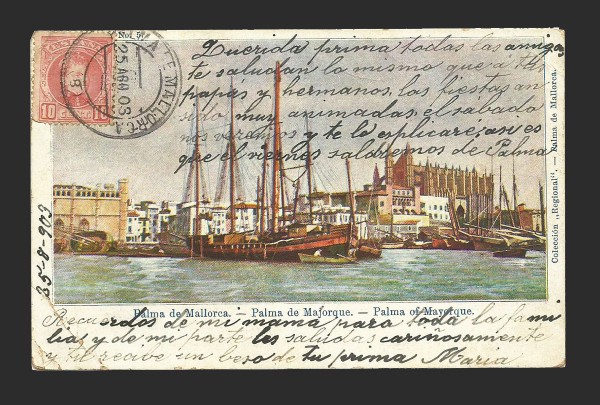 No. 5
ESPAÑA
10
25 AGO 03
MALLORCA
Querida prima todas las amigas
te saludan lo mismo que a tus
papas y hermanos, las fiestas an
sido muy animadas, el sabado
nos veremos y te lo explicaré, asi es
que el viernes saldremos de Palma
Colección „Regional“. — Palma de Mallorca.
25-8-903
Palma de Mallorca. — Palma de Majorque. — Palma of Mayorque.
Recuerdos de mi mamá para toda la fami
lia, y de mi parte les saludas cariñosamente
y tu recive un beso de tu prima Maria